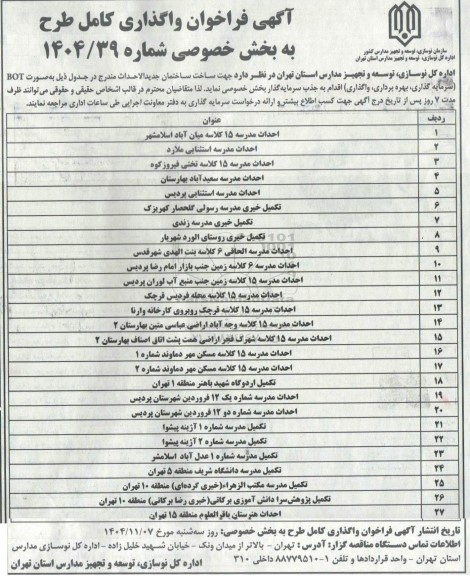 آگهی فراخوان واگذاری کامل طرح
به بخش خصوصی شماره ۱۴۰۴/۳۹
سازمان نوسازی، توسعه و تجهیز مدارس کشور
اداره کل نوسازی، توسعه و تجهیز مدارس استان تهران
اداره کل نوسازی، توسعه و تجهیز مدارس استان تهران در نظر دارد جهت ساخت ساختمان جدیدالاحداث مندرج در جدول ذیل به‌صورت BOT
(سرمایه گذاری، بهره برداری، واگذاری) اقدام به جذب سرمایه‌گذار بخش خصوصی نماید. لذا متقاضیان محترم در قالب اشخاص حقیقی و حقوقی می‌توانند ظرف
مدت ۷ روز پس از تاریخ درج آگهی جهت کسب اطلاع بیشتر و ارائه درخواست سرمایه گذاری به دفتر معاونت اجرایی طی ساعات اداری مراجعه نمایند.
ردیف عنوان
۱ احداث مدرسه ۱۵ کلاسه میان آباد اسلامشهر
۲ احداث مدرسه استثنایی ملارد
۳ احداث مدرسه ۱۵ کلاسه تختی فیروزکوه
۴ احداث مدرسه سعیدآباد بهارستان
۵ احداث مدرسه استثنایی پردیس
۶ تکمیل خیری مدرسه رسولی گلحصار کهریزک
۷ تکمیل خیری مدرسه زندی
۸ تکمیل خیری روستای الورد شهریار
۹ احداث مدرسه الحاقی ۶ کلاسه بنت الهدی شهرقدس
۱۰ احداث مدرسه ۶ کلاسه زمین جنب بازار امام رضا پردیس
۱۱ احداث مدرسه ۱۵ کلاسه زمین جنب منبع آب لوران پردیس
۱۲ احداث مدرسه ۱۵ کلاسه محله فردیس قرچک
۱۳ احداث مدرسه ۱۵ کلاسه قرچک روبروی کارخانه وارنا
۱۴ احداث مدرسه ۱۵ کلاسه وجه آباد اراضی عباسی متین بهارستان ۲
۱۵ احداث مدرسه ۱۵ کلاسه شهرک فجر اراضی همت پشت اتاق اصناف بهارستان ۲
۱۶ احداث مدرسه ۱۵ کلاسه مسکن مهر دماوند شماره ۱
۱۷ احداث مدرسه ۱۵ کلاسه مسکن مهر دماوند شماره ۲
۱۸ تکمیل اردوگاه شهید باهنر منطقه ۱ تهران
۱۹ احداث مدرسه شماره یک ۱۲ فروردین شهرستان پردیس
۲۰ احداث مدرسه شماره دو ۱۲ فروردین شهرستان پردیس
۲۱ تکمیل مدرسه شماره ۱ آژینه پیشوا
۲۲ تکمیل مدرسه شماره ۲ آژینه پیشوا
۲۳ تکمیل هنرسه شماره ۱ عدل آباد اسلامشر
۲۴ تکمیل مدرسه دانشگاه شریف منطقه ۵ تهران
۲۵ تکمیل مدرسه مکتب الزهراء(خیری گرده‌ای) منطقه ۱۰ تهران
۲۶ تکمیل پژوهش‌سرا دانش آموزی برکاتی(خیری رضا برکاتی) منطقه ۱۰ تهران
۲۷ احداث هنرستان باقرالعلوم منطقه ۱۵ تهران
تاریخ انتشار آگهی فراخوان واگذاری کامل طرح به بخش خصوصی: روز سه‌شنبه مورخ ۱۴۰۴/۱۱/۰۷
اطلاعات تماس دستگاه مناقصه گزار: آدرس : تهران - بالاتر از میدان ونک - خیابان شهید خلیل زاده - اداره کل نوسازی مدارس
استان تهران - واحد قراردادها و تلفن ۱-۸۸۷۷۹۵۱۰ داخلی ۳۱۰
اداره کل نوسازی، توسعه و تجهیز مدارس استان تهران